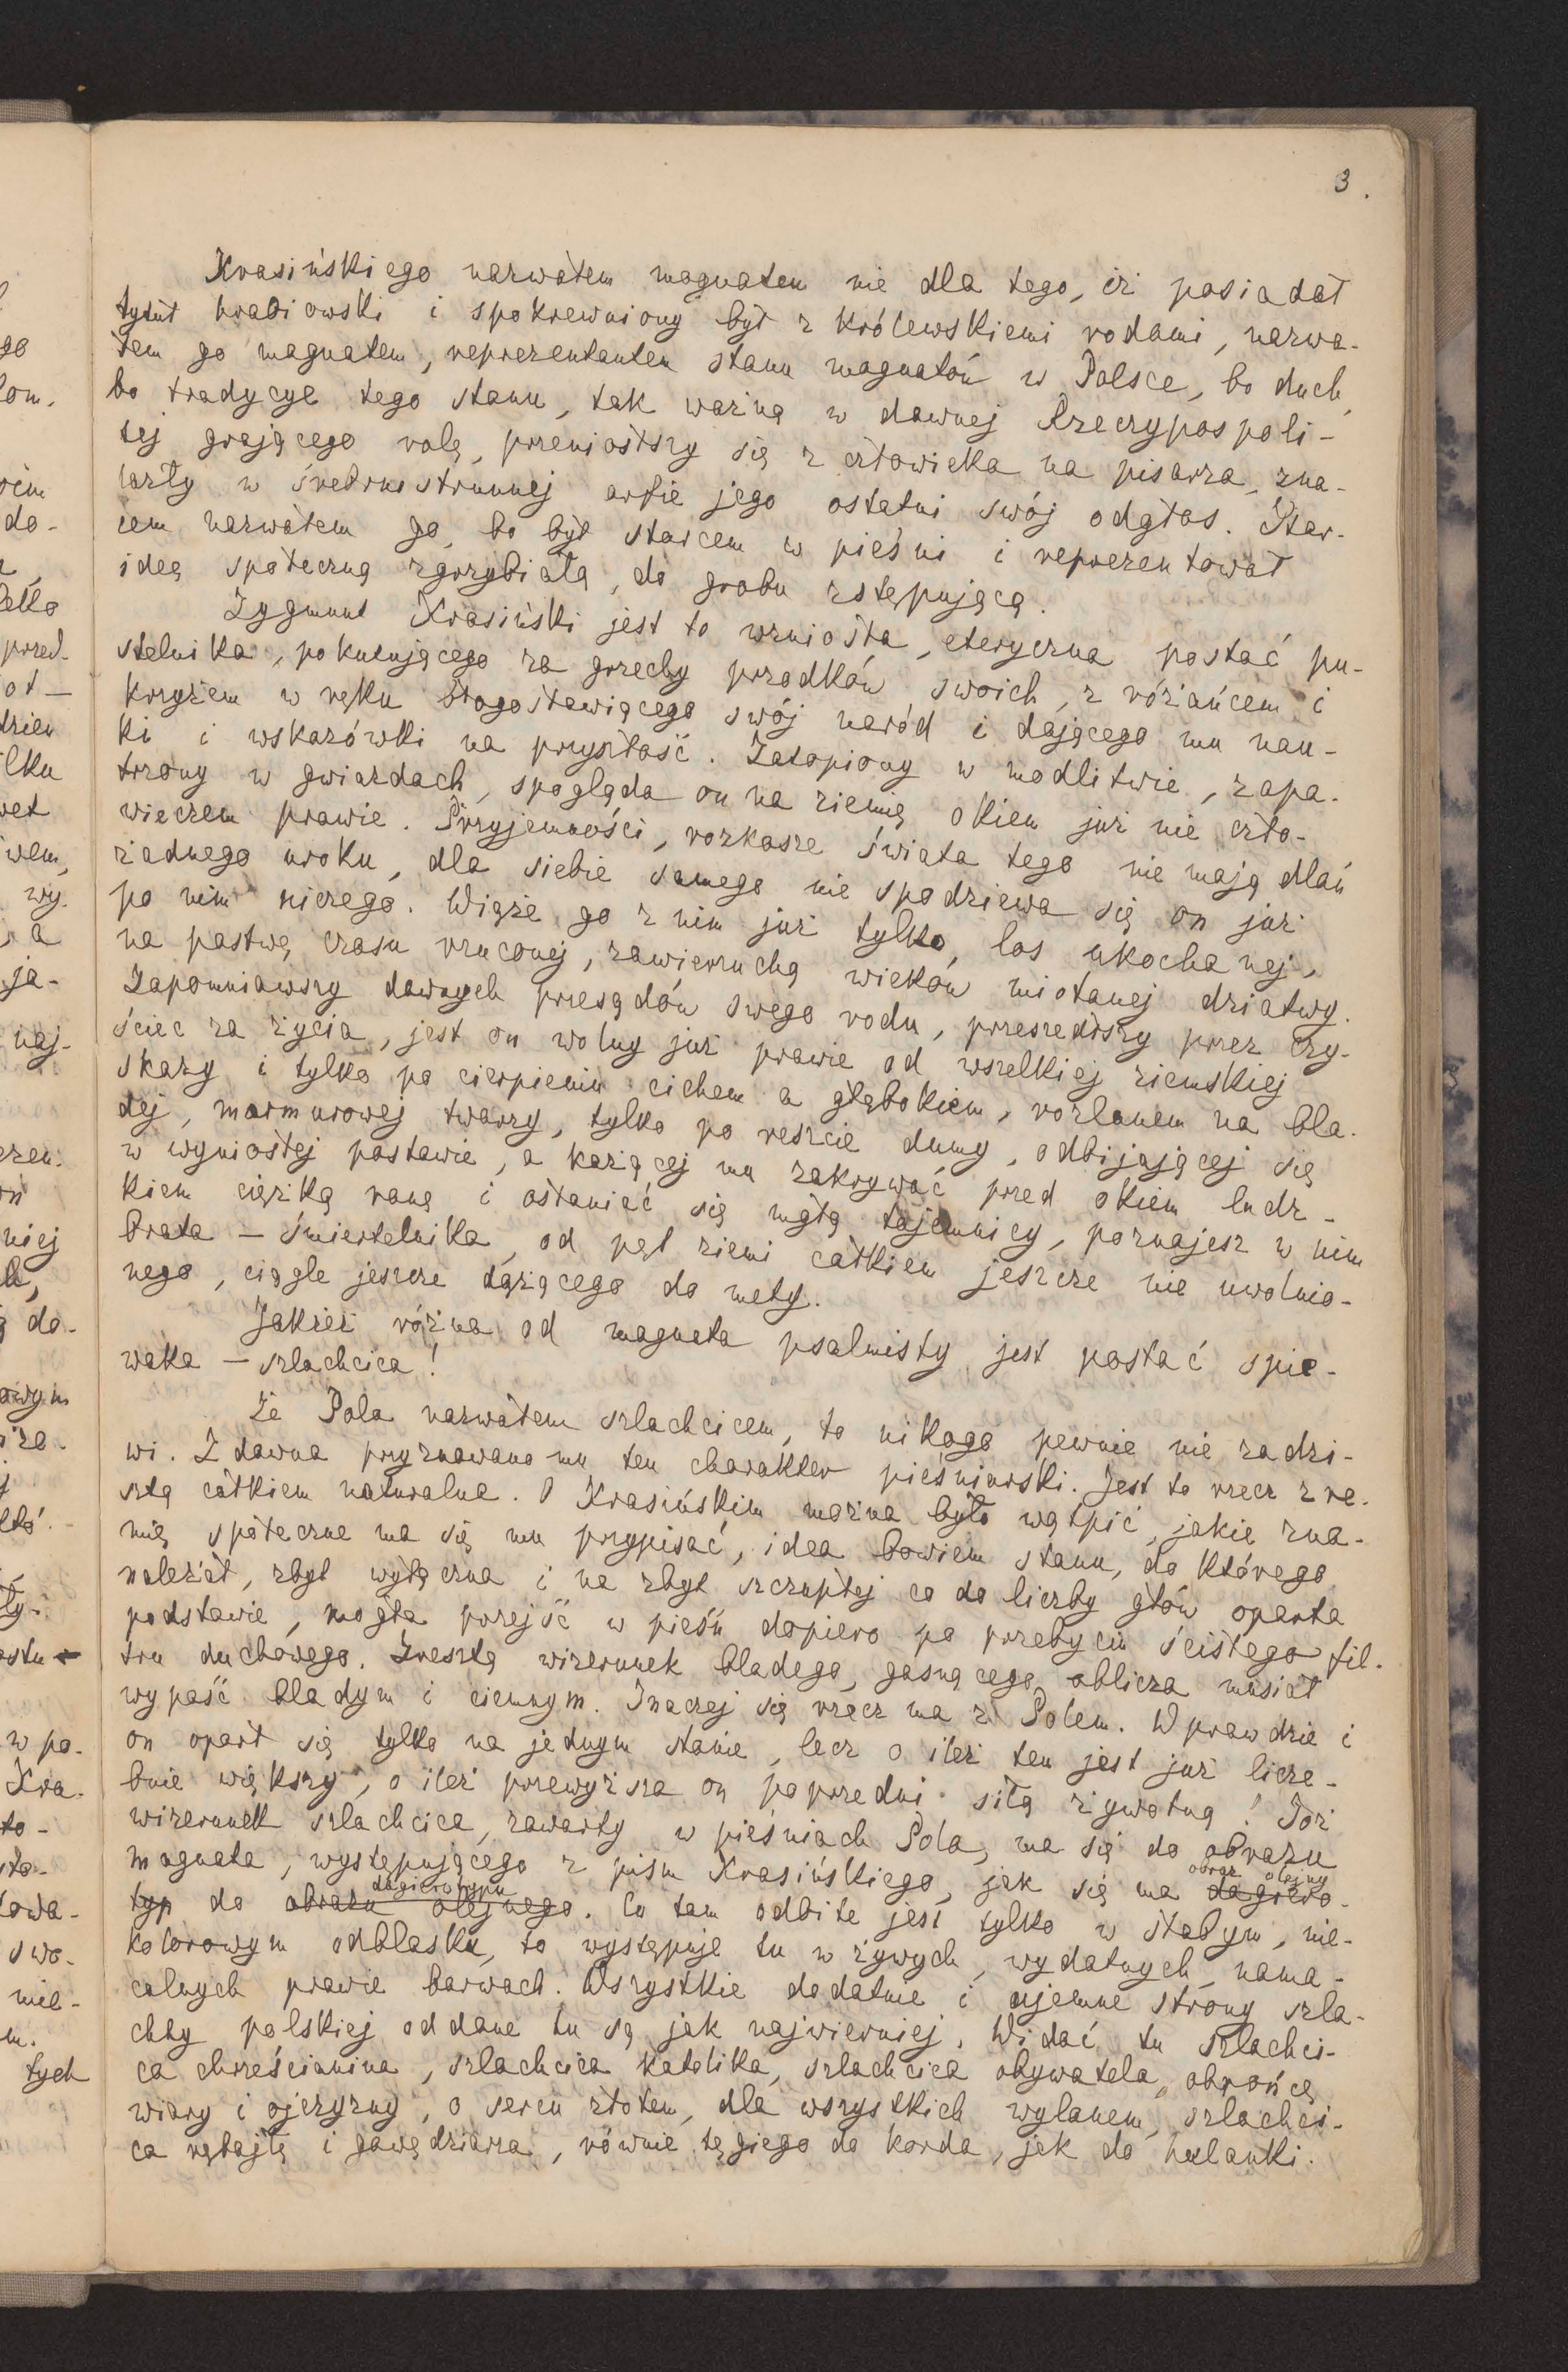 3.
Krasińskiego nazwałem magnatem nie dla tego, iż posiadał
tytuł hrabiowski i spokrewniony był z królewskiemi rodami, nazwa-
łem go magnatem, reprezentantem stanu magnatów w Polsce, bo duch,
bo tradycye tego stanu, tak ważną w dawnej Rzeczypospoli-
tej grającego rolę, przeniósłszy się z człowieka na pisarza, zna-
lazły w śrebrnostrunnej arfie jego ostatni swój odgłos. Star-
cem nazwałem go, bo był starcem w pieśni i reprezentował
ideę społeczną zgrzybiałą, do grobu zstępującą.
Zygmunt Krasiński jest to wzniosła, eteryczna postać pu-
stelnika, pokutującego za grzechy przodków swoich, z różańcem i
krzyżem w ręku błogosławiącego swój naród i dającego mu nau-
ki i wskazówki na przyszłość. Zatopiony w modlitwie, zapa-
trzony w gwiazdach, spogląda on na ziemię okiem już nie czło-
wieczem prawie. Przyjemności, rozkosze świata tego nie mają dlań
żadnego uroku, dla siebie samego nie spodziewa się on już
po nim niczego. Wiąże go z nim już tylko los ukochanej,
na pastwę czasu rzuconej, zawieruchą wieków miotanej dziatwy.
Zapomniawszy dawnych przesądów swego rodu, przeszedłszy przez czy-
ściec za życia, jest on wolny już prawie od wszelkiej ziemskiej
skazy i tylko po cierpieniu cichem a głębokiem, rozlanem na bla-
dej, marmurowej twarzy, tylko po reszcie dumy, odbijającej się
w wyniosłej postawie, a każącej mu zakrywać przed okiem ludz-
kiem ciężką ranę i osłaniać się mgłą tajemnicy, poznajesz w nim
brata – śmiertelnika, od pęt ziemi całkiem jeszcze nie uwolnio-
nego, ciągle jeszcze dążącego do mety.
Jakżeż różna od magnata psalmisty jest postać śpie-
waka – szlachcica!
Że Pola nazwałem szlachcicem, to nikogo pewnie nie zadzi-
wi. Z dawna przyznawano mu ten charakter pieśniarski. Jest to rzecz zre-
sztą całkiem naturalna. O Krasińskim można było wątpić, jakie zna-
mię społeczne ma się mu przypisać, idea bowiem stanu, do którego
należał, zbyt wyłączna i na zbyt szczupłej co do liczby głów oparta
podstawie, mogła przejść w pieśń dopiero po przebyciu ścisłego fil-
tru duchowego. Zresztą wizerunek bladego, gasnącego oblicza musiał
wypaść bladym i ciemnym. Inaczej się rzecz ma z Polem. Wprawdzie i
on oparł się tylko na jednym stanie, lecz o ileż ten jest już licze-
bnie większy, o ileż przewyższa on poprzedni siłą żywotną! Toż
wizerunek szlachcica, zawarty w pieśniach Pola, ma się do obrazu
magnata, występującego z pism Krasińskiego, jak się ma dagiero-
obraz olejny
typ do obrazu olejnego. Co tam odbite jest tylko w słabym, nie-
dagierotypu
kolorowym odblasku, to występuje tu w żywych, wydatnych, nama-
calnych prawie barwach. Wszystkie dodatnie i ujemne strony szla-
chty polskiej oddane tu są jak najwierniej. Widać tu szlachci-
ca chrześcianina, szlachcica katolika, szlachcica obywatela, obrońcę
wiary i ojczyzny, o sercu złotem, dla wszystkich wylanem, szlachci-
ca rębajłę i gawędziarza, równie tęgiego do korda, jak do hulanki.